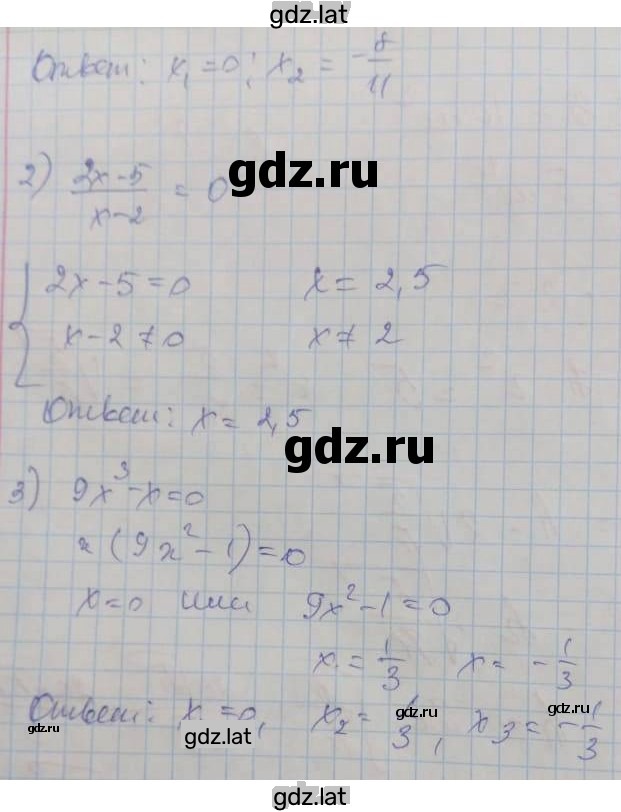 gdz.lat
Ответ: x₁ = 0; x₂ = -8/11
gdz.ru
2) (2x-5)/(x-2) = 0
{ 2x-5=0    x = 2,5
x-2≠0    x ≠ 2
Ответ: x = 2,5
gdz.ru
3) 9x³-x=0
x(9x²-1)=0
x=0 или 9x²-1=0
x = 1/3    x = -1/3
Ответ: x = 0, x₂ = 1/3, x₃ = -1/3
gdz.ru gdz.lat gdz.ru
gdz.lat